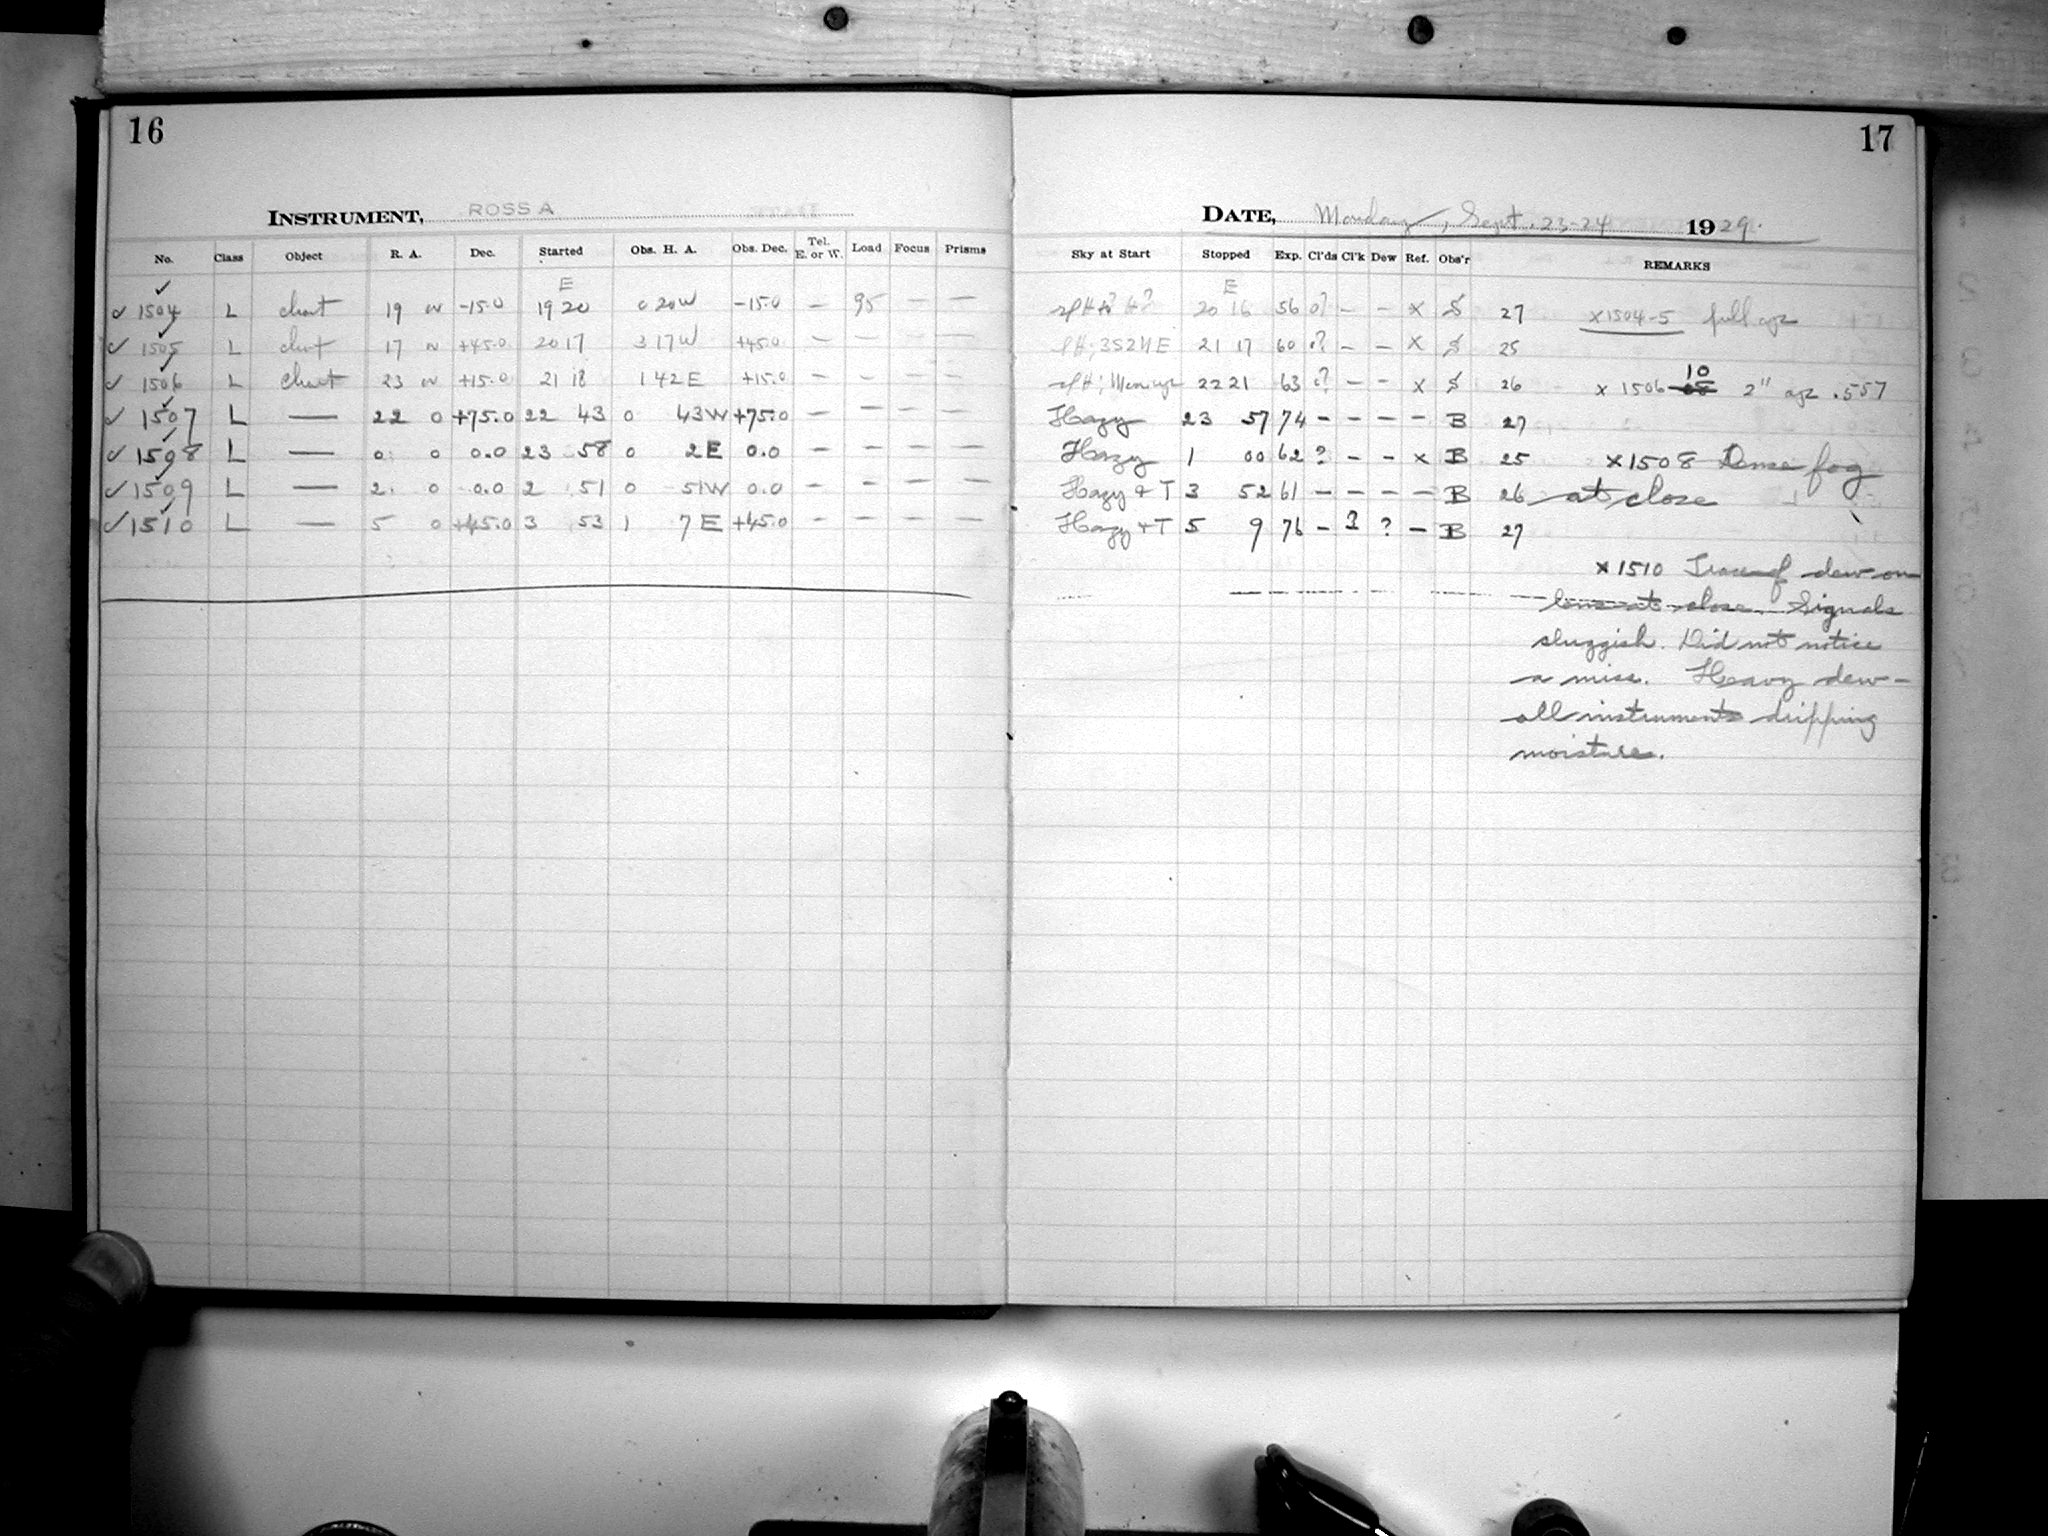 16
INSTRUMENT, ROSS A
No. Class Object R. A. Dec. Started Obs. H. A. Obs. Dec. Tel. E. or W. Load Focus Prisms
E
✓ 1504 L chart 19 -15.0 19 20 0 20W -15.0 — 95 — —
✓ 1505 L chart 17 +45.0 20 17 3 17W +45.0 — — — —
✓ 1506 L chart 23 +15.0 21 18 1 42E +15.0 — — — —
✓ 1507 L — 22 0 +75.0 22 43 0 43W +75.0 — — — —
✓ 1508 L — 0 0 0.0 23 58 0 2E 0.0 — — — —
✓ 1509 L — 2 0 0.0 2 51 0 51W 0.0 — — — —
✓ 1510 L — 5 0 +45.0 3 53 1 7E +45.0 — — — —
17
DATE, Monday, Sept. 23-24 1929.
Sky at Start Stopped Exp. Cl'ds Cl'k Dew Ref. Obs'r REMARKS
E
20 16 56 0? — — x 27 x1504-5 full ap
21 17 60 ? — — x 25
22 21 63 ? — — x 26 x 1506 10 2" ap .557
Hazy 23 57 74 — — — — B 27
Hazy 1 00 62 ? — — x B 25 x1508 Dense fog
Hazy + T 3 52 61 — — — — B 26 at close
Hazy + T 5 9 76 — ? ? — B 27
x 1510 Trace of dew on
lens at close. Signals
sluggish. Did not notice
a miss. Heavy dew —
all instruments dripping
moisture.